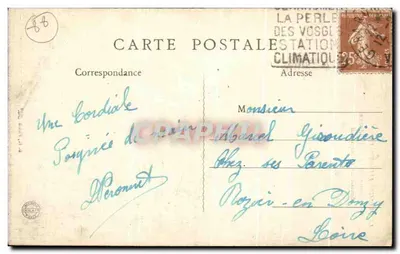 88
GERARDMER
LA PERLE
DES VOSGES
STATION
CLIMATIQUE
25
CARTE POSTALE
Correspondance
Adresse
Une Cordiale
Poignée de main
Monsieur
Marcel Giraudière
Chez ses Parents
Rozier-en Donzy
Loire
CARTE PRAPHILA